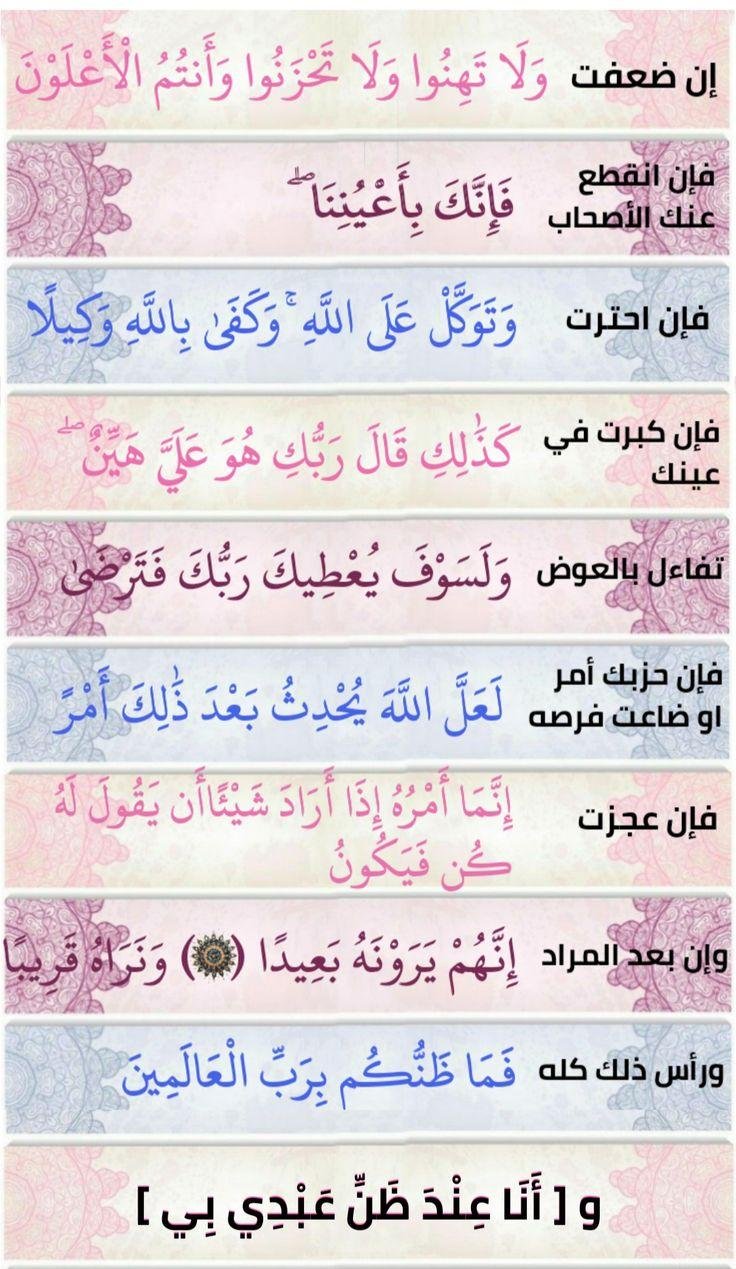 إن ضعفت وَلَا تَهِنُوا وَلَا تَحْزَنُوا وَأَنتُمُ الْأَعْلَوْنَ
فإن انقطع
عنك الأصحاب
فَإِنَّكَ بِأَعْيُنِنَا ۖ
فإن احترت وَتَوَكَّلْ عَلَى اللَّهِ ۚ وَكَفَىٰ بِاللَّهِ وَكِيلًا
فإن كبرت في
عينك
كَذَٰلِكِ قَالَ رَبُّكِ هُوَ عَلَيَّ هَيِّنٌ ۖ
تفاءل بالعوض وَلَسَوْفَ يُعْطِيكَ رَبُّكَ فَتَرْضَىٰ
فإن حزبك أمر
او ضاعت فرصه
لَعَلَّ اللَّهَ يُحْدِثُ بَعْدَ ذَٰلِكَ أَمْرً
فإن عجزت
إِنَّمَا أَمْرُهُ إِذَا أَرَادَ شَيْئًاأَن يَقُولَ لَهُ
كُن فَيَكُونُ
وإن بعد المراد إِنَّهُمْ يَرَوْنَهُ بَعِيدًا () وَنَرَاهُ قَرِيبًا
ورأس ذلك كله فَمَا ظَنُّكُم بِرَبِّ الْعَالَمِينَ
و [ أَنَا عِنْدَ ظَنِّ عَبْدِي بِي ]